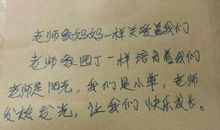 老师像妈妈一样关爱着我们
老师象园丁一样培育着我们
老师是阳光，我们是小草，老师
发热发光，让我们快乐成长。